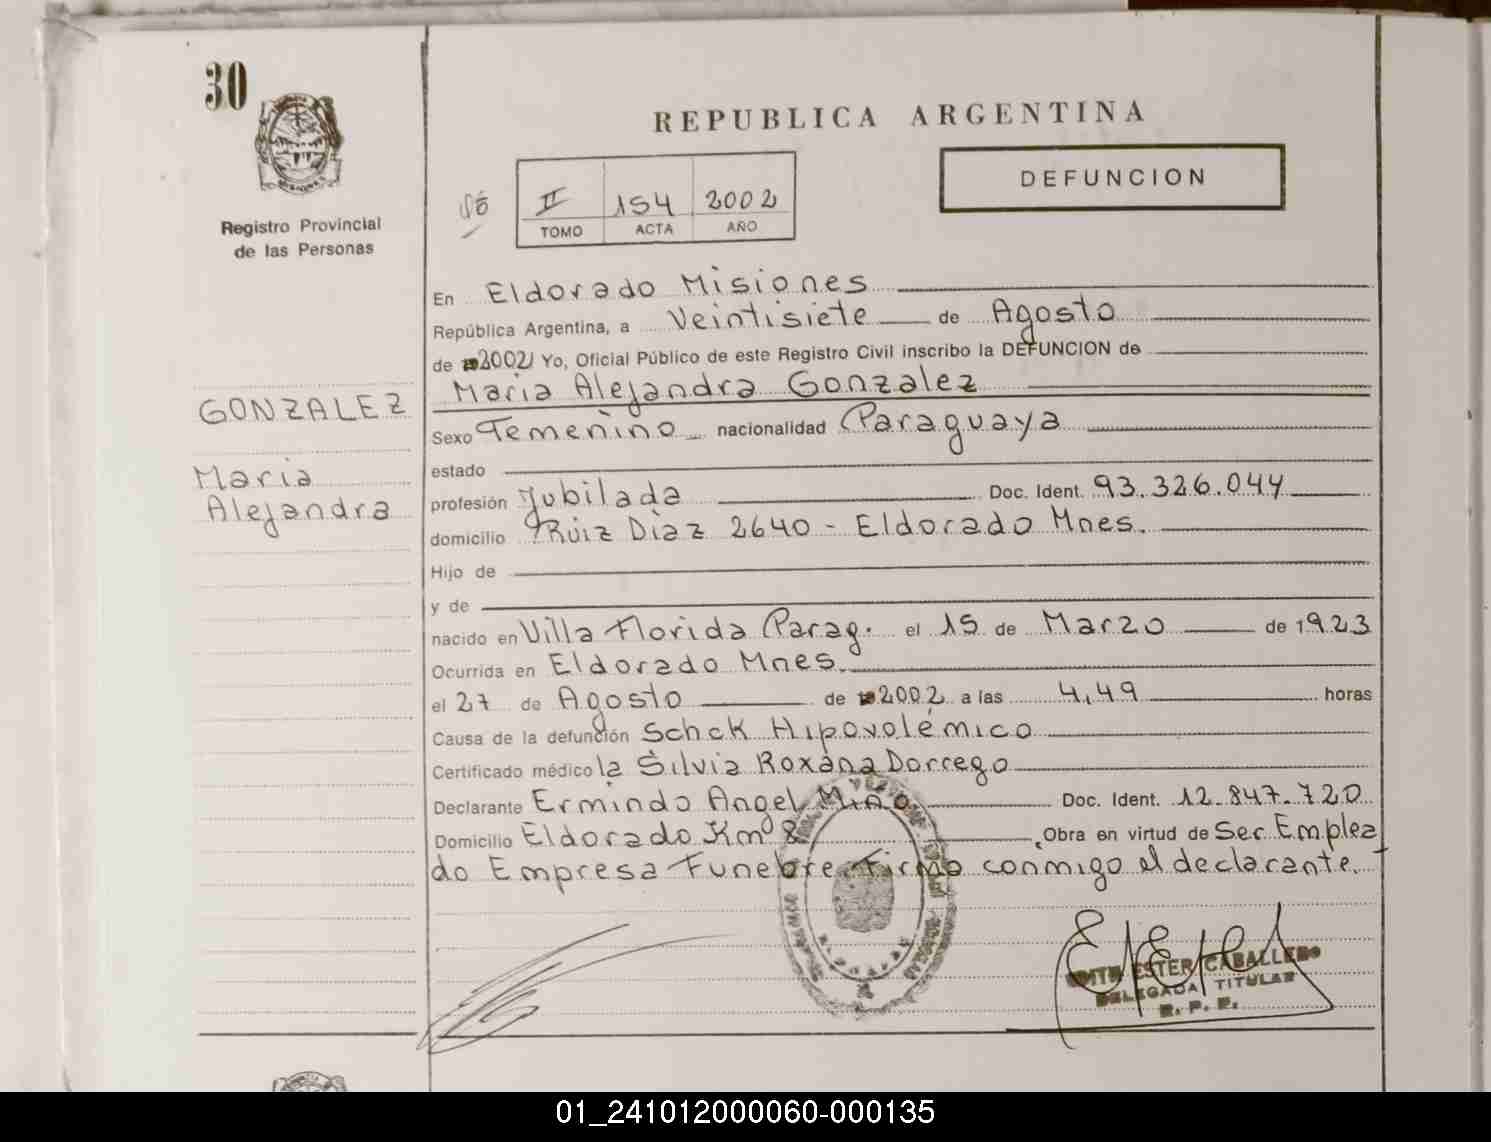 30
Registro Provincial
de las Personas
REPUBLICA ARGENTINA
DEFUNCION
II 154 2002
TOMO ACTA AÑO
GONZALEZ
Maria
Alejandra
En Eldorado Misiones
República Argentina, a Veintisiete de Agosto
de 2002 Yo, Oficial Público de este Registro Civil inscribo la DEFUNCION de
Maria Alejandra Gonzalez
Sexo Femenino nacionalidad Paraguaya
estado
profesión Jubilada Doc. Ident. 93.326.044
domicilio Ruiz Diaz 2640 - Eldorado Mnes.
Hijo de
y de
nacido en Villa Florida Parag. el 15 de Marzo de 1923
Ocurrida en Eldorado Mnes.
el 27 de Agosto de 2002 a las 4,49 horas
Causa de la defunción Schok Hipovolémico
Certificado médico la Silvia Roxana Dorrego
Declarante Ermindo Angel Doc. Ident. 12.847.720
Domicilio Eldorado Kmº 8 Obra en virtud de Ser Emplea
do Empresa Funebre Firma conmigo el declarante.
EDITH ESTER CABALLERO
DELEGADA TITULAR
R. P. P.
01_241012000060-000135